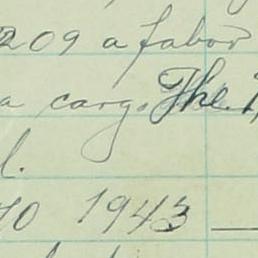 209 a favor
a cargo The
l.
70 1943